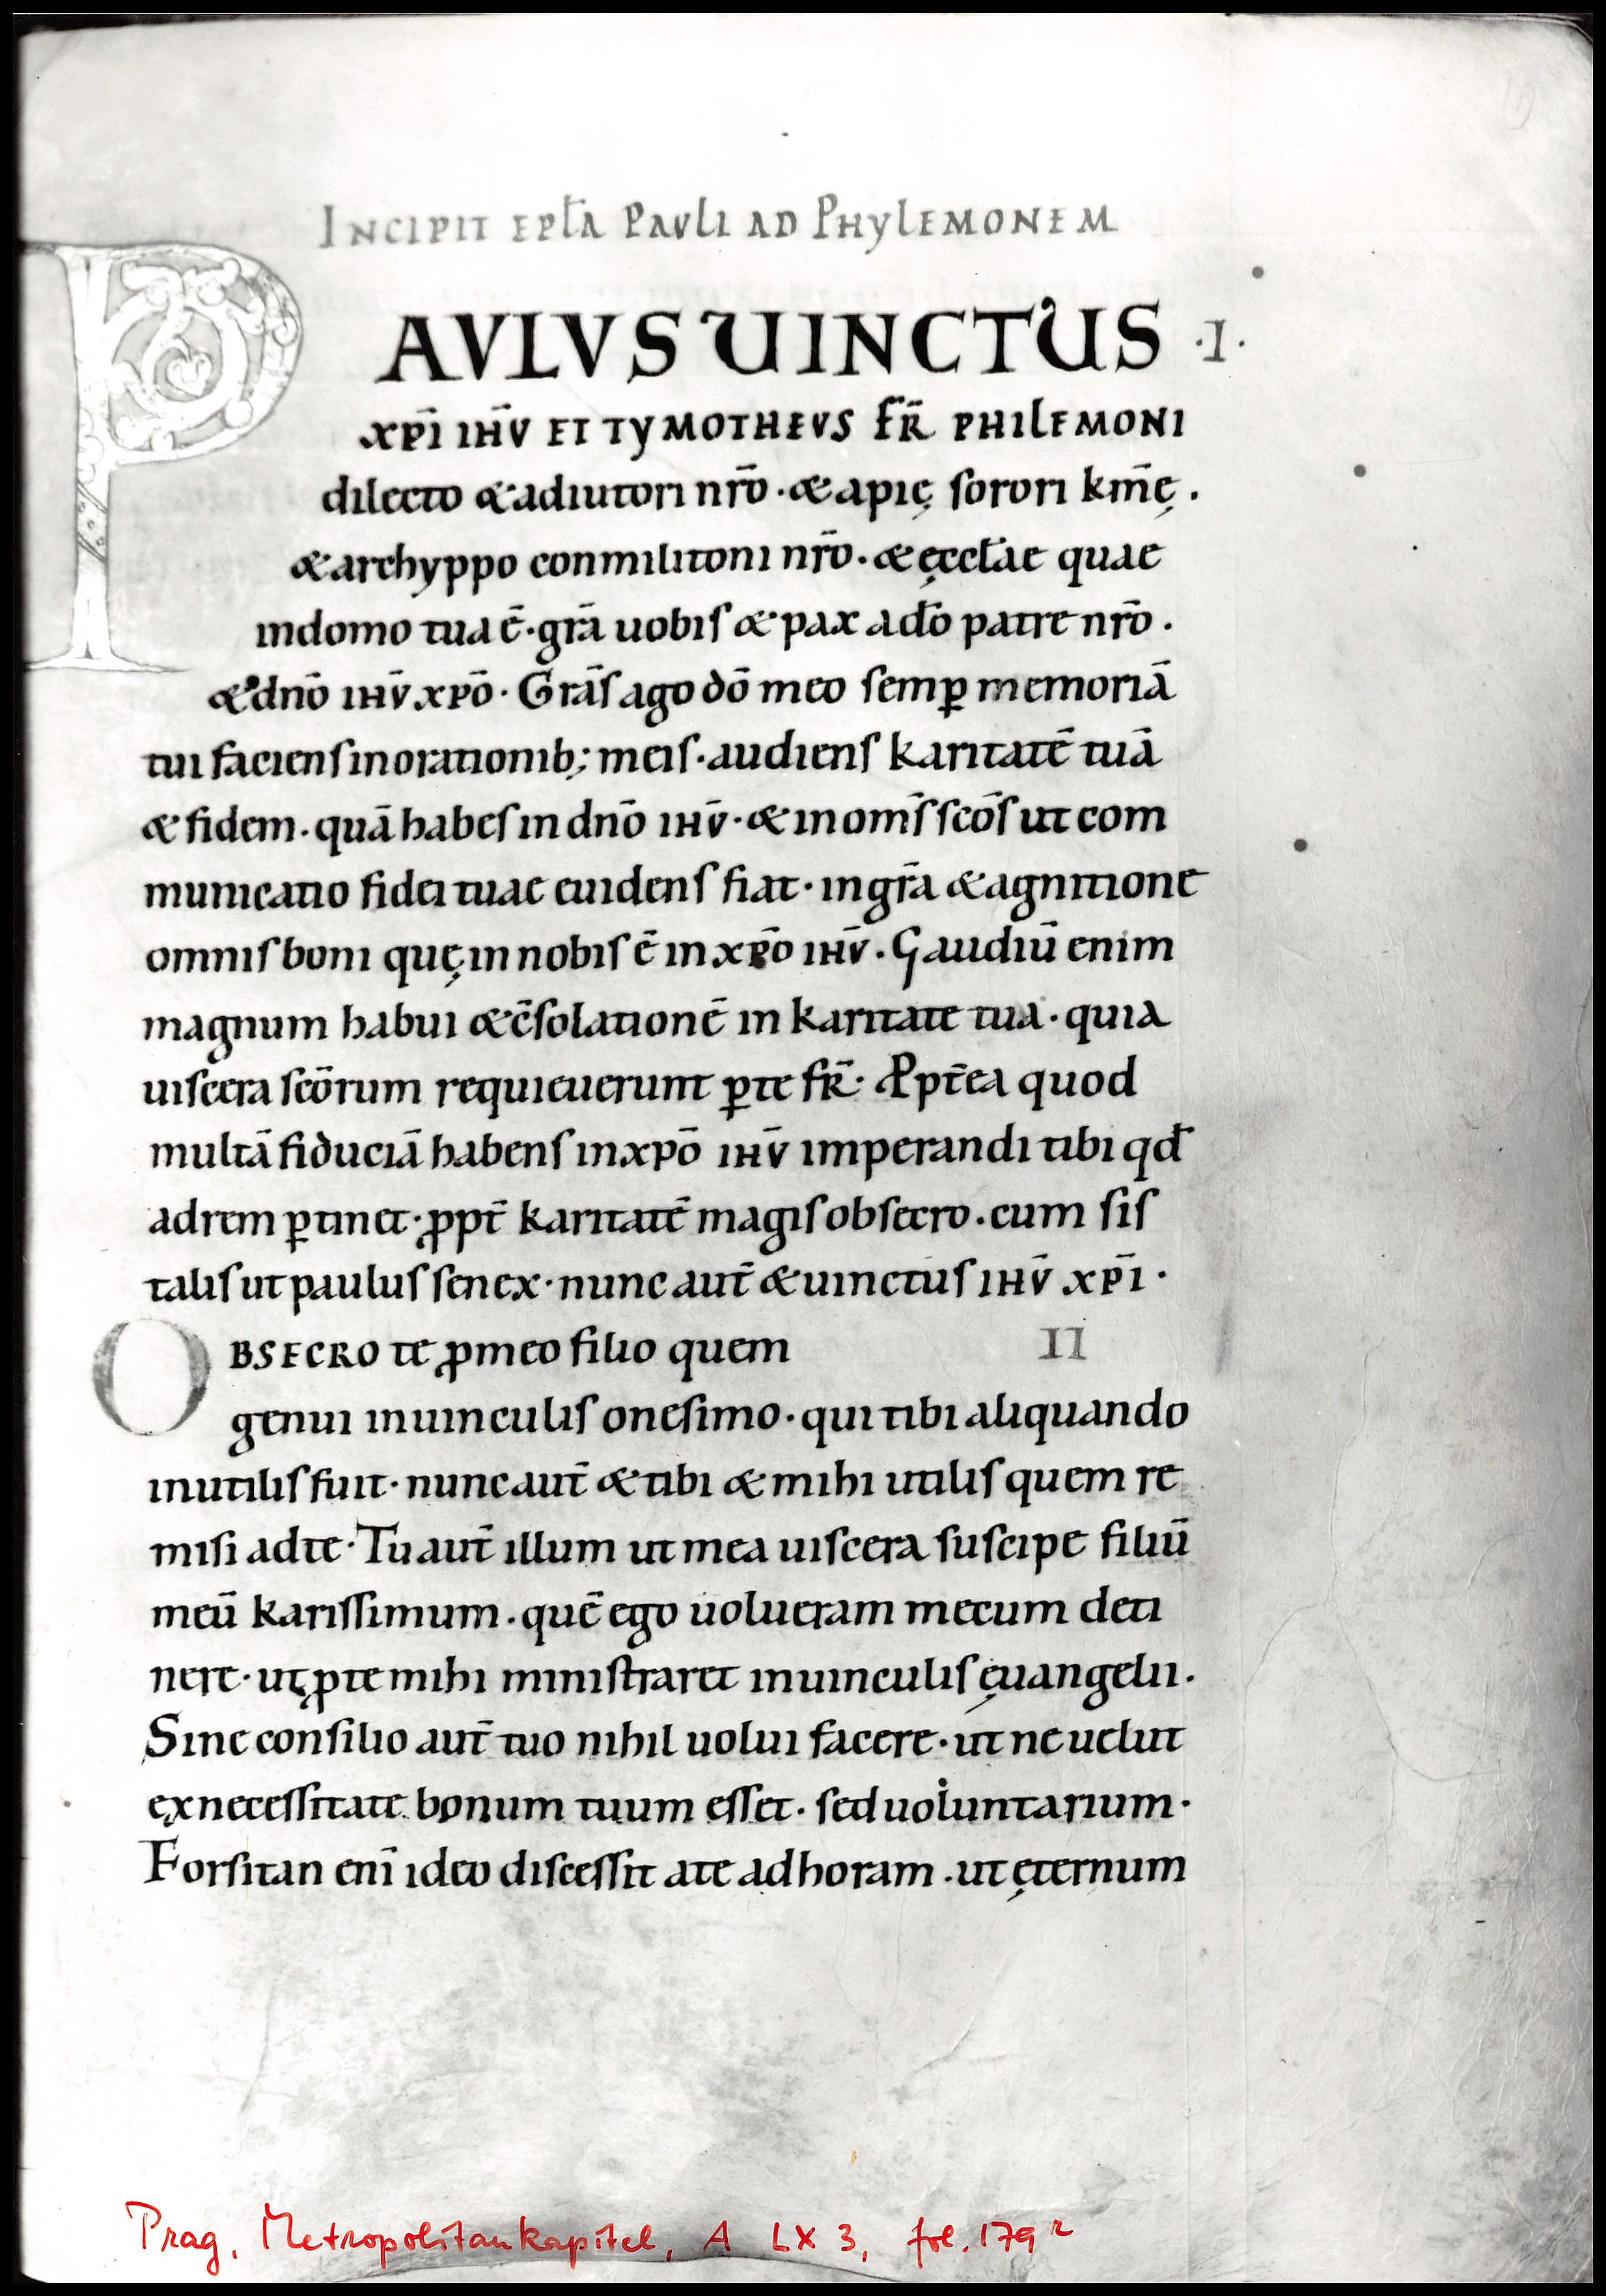 INCIPIT EPLA PAULI AD PHYLEMONEM
PAVLVS UINCTUS ·I·
XPI IHV ET TYMOTHEVS FR PHILEMONI
dilecto & adiutori nro · & apię sorori kmę .
& archyppo conmilitoni nro · & ęcclae quae
indomo tua ē · grā uobis & pax ado patre nro .
& dno IHV xpo · Gras ago do meo semp memoriā
tui faciens inorationib; meis · audiens karitatē tuā
& fidem · quā habes in dno IHV · & in oms scos ut com
municatio fidei tuae euidens fiat · in gra & agnitione
omnis boni quę in nobis ē in xpo IHV . Gaudiū enim
magnum habui & c̄solationē in karitate tua · quia
uiscera scorum requieuerunt ꝑ te fr · Ꝓptea quod
multā fiduciā habens in xpo IHV imperandi tibi qd
ad rem ꝑtinet · ꝓpt karitatē magis obsecro . cum sis
talis ut paulus senex · nunc aut & uinctus IHV XPI ·
OBSECRO te ꝓ meo filio quem II
genui inuinculis onesimo · qui tibi aliquando
inutilis fuit · nunc aut & tibi & mihi utilis quem re
misi ad te · Tu aut illum ut mea uiscera suscipe filiū
meū karissimum . quē ego uolueram mecum deti
nere · ut ꝓ te mihi ministraret inuinculis ęuangelii .
Sine consilio aut tuo nihil uolui facere · ut ne uelut
ex necessitate bonum tuum esset · sed uoluntarium ·
Forsitan enī ideo discessit a te ad horam . ut ęternum
Prag, Metropolitankapitel, A LX 3, fol. 179 r